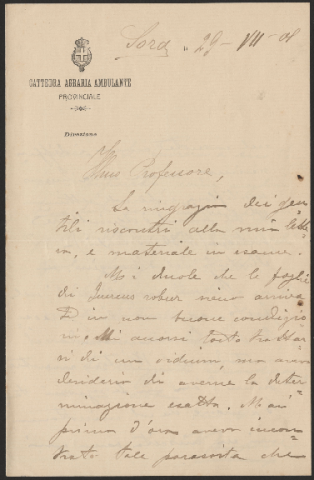 Sora, 29-VII-08
CATTEDRA AGRARIA AMBULANTE
PROVINCIALE
DIREZIONE
Illmo Professore,
La ringrazio dei gen=
tili riscontri alla mia lette=
ra, e materiale in esame.
Mi duole che le foglie
di Quercus robur siano arriva=
te in non buone condizio=
ni. Mi accorsi tosto trattar=
si di un oidium, ma avevo
desiderio di averne la deter=
minazione esatta. Mai
prima d'ora avevo incon=
trato tale parassita che